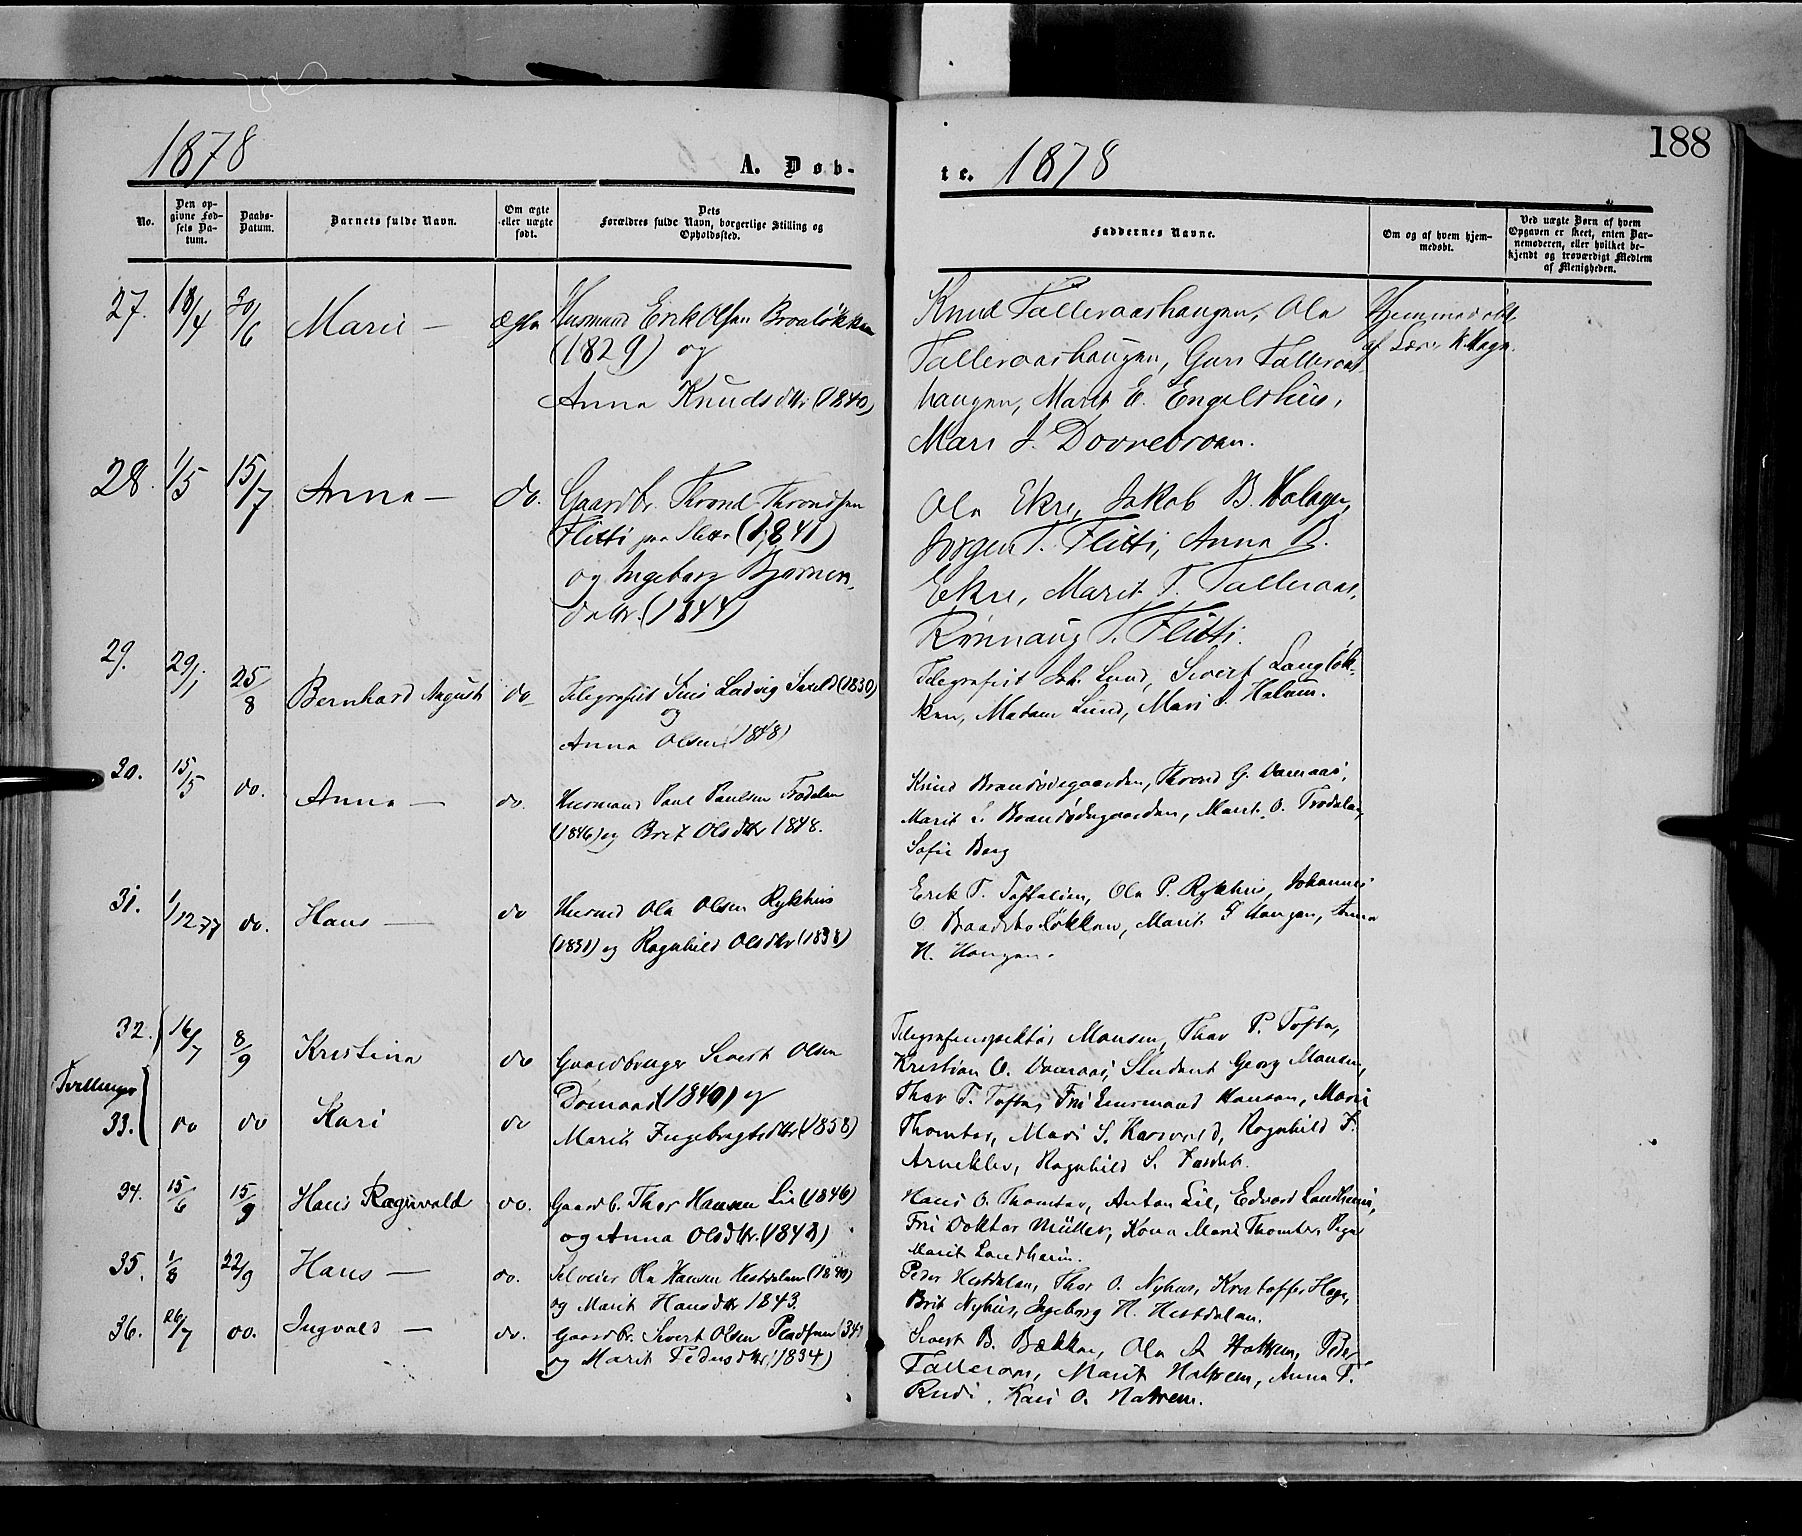 188
1878
A. Døb-
te. 1878
No.
Den op-
givne Fød-
sels Da-
tum.
Daabs-
Datum.
Barnets fulde Navn.
Om ægte
eller uægte
født.
Dets
Forældres fulde Navn, borgerlige Stilling og
Opholdssted.
Faddernes Navne.
Om og af hvem hjem-
medøbt.
Ved uægte Børn af hvem
Opgaven er skeet, enten Bar-
nemoderen, eller hvilket be-
kjendt og troværdigt Medlem
af Menigheden.
27. 18/4 30/6 Marie — ægte Husmand Erik Olsen Broaløkken
(1829) og
Anna Knudsdtr (1840)
Knud Talleraashaugen, Ola
Talleraashaugen, Guri Talleraas-
haugen, Marit E. Engelshus,
Mari J. Dovrebroen.
Hjemmedøbt
af Lærer K. Hage.
28. 1/5 15/7 Anna — do. Gaardbr. Thrond Throndsen
Flitti (1841)
og Ingeborg Bjørners-
datr. (1844)
Ola Ekre, Jakob B. Halagen,
Jørgen T. Flitti, Anna B.
Ekre, Marit T. Talleraas,
Rønnaug T. Flitti.
29. 29/1 25/8 Bernhard August do Telegrafist Ludvig (1830)
og
Anna Olsen (1848)
Telegrafist Joh. Lund, Sivert Langløk-
ken, Madam Lund, Mari J. Halum.
30. 15/5 do. Anna — do. Husmand Paul Paulsen Trodalen
(1846) og Brit Olsdtr 1848.
Knud Brandødegaarden, Thrond G. Dameraas,
Marit L. Brandødegaarden, Marit O. Trodalen,
Sofie Berg
31. 1/12 77 do. Hans — do Husmd Ola Olsen Rykhus
(1831) og Ragnhild Olsdtr (1838)
Erik T. Toftelien, Ola P. Rykhus, Johannes
O. Baadstoløkken, Marit T Haugen, Anna
H. Haugen.
32. 16/7 8/9 Kristina do Gaardbruger Sivert Olsen
Tvillinger
33. do do Kari do
Domaas (1840) og
Marit Ingebrigtsdtr (1858)
Telegrafinspektør Monsen, Thor P. Tofte,
Kristian O. Domaas, Student Georg Monsen,
Thor T. Tofte, Fru Lensmand Hansen, Mari
Thomter, Mari S. Korsvold, Ragnhild T.
Arneklev, Ragnhild S.
34. 15/6 15/9 Hans Ragnvald do. Gaardb. Thor Hansen Lie (1846)
og Anna Olsdtr. (1848)
Hans O. Thomter, Anton Lie, Edvard Landheim,
Fru Doktor Müller, Kona Mari Thomter, Pige
Marit Landheim.
35. 1/8 22/9 Hans — do. Selveier Ola Hansen Hestdalen (1840)
og Marit Hansdtr 1843.
Peder Hestdalen, Thor O. Nyhus, Kristoffer Hage,
Brit Nyhus, Ingeborg H. Hestdalen.
36. 26/7 do. Ingvald — do. Gaardbr. Sivert Olsen (34)
og Marit Pedersdtr (1834)
Sivert B. Bækken, Ola A Hattrem, Peder
Talleraas, Marit Hattrem, Anna T.
Rudi, Kari O. Hattrem.